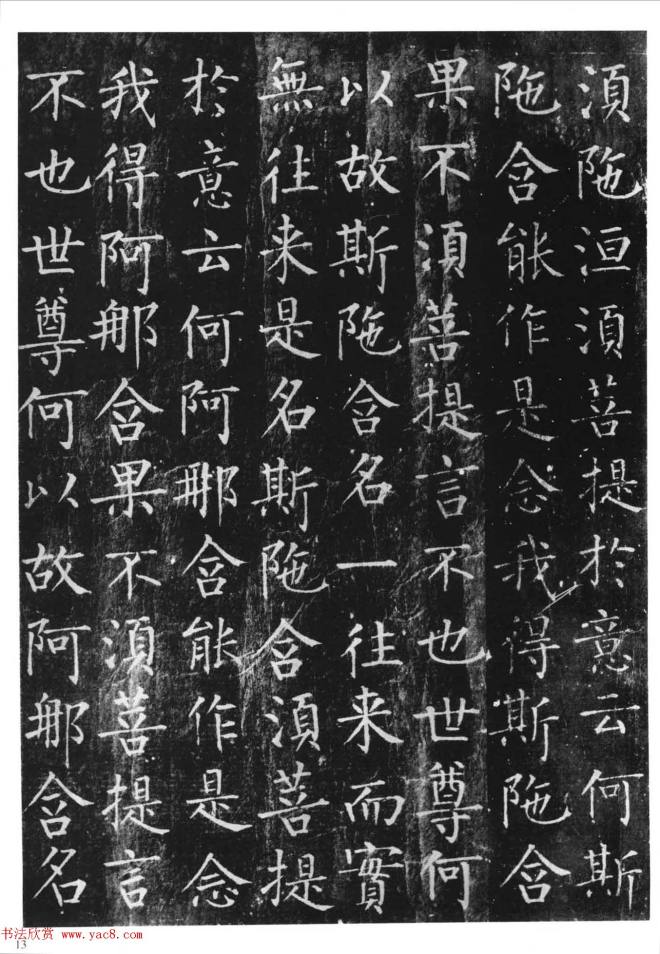 湏陁洹湏菩提於意云何斯
陁含能作是念我得斯陁含
果不湏菩提言不也世尊何
以故斯陁含名一往来而實
無往来是名斯陁含湏菩提
於意云何阿那含能作是念
我得阿那含果不湏菩提言
不也世尊何以故阿那含名
书法欣赏 www.yac8.com
13